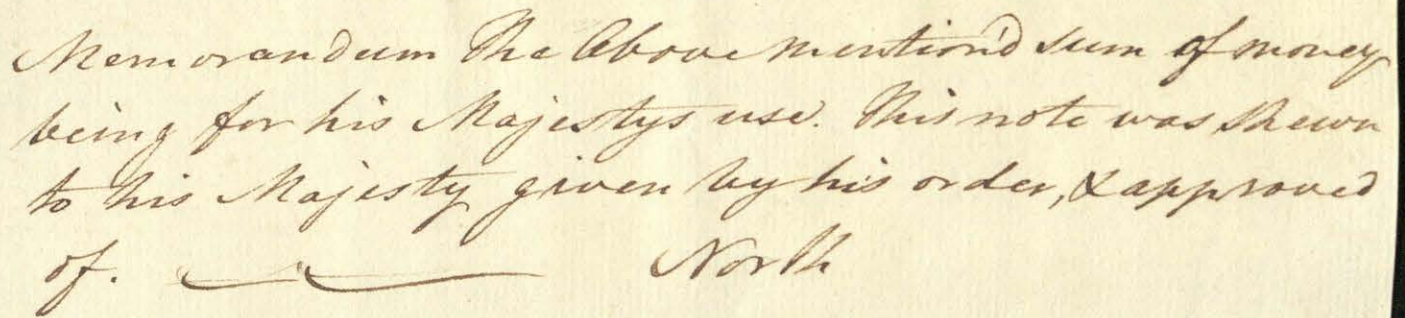 Memorandum The Above mention'd sum of money
being for his Majestys use. This note was shewn
to his Majesty given by his order, & approved
of. North